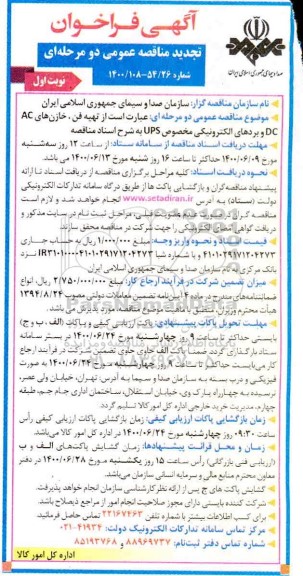 آگهی فراخوان
تجدید مناقصه عمومی دو مرحله‌ای
شماره ۵۴/۲۶-۱۴۰۰/۱۰۸
نوبت اول
صدا و سیمای جمهوری اسلامی ایران
نام سازمان مناقصه گزار: سازمان صدا و سیمای جمهوری اسلامی ایران
موضوع مناقصه عمومی دو مرحله ای عبارت است از تهیه فن، خازن‌های AC
DC و بردهای الکترونیکی مخصوص UPS به شرح اسناد مناقصه
مهلت دریافت اسناد مناقصه از سامانه ستاد: از ساعت ۱۲ روز سه‌شنبه
مورخ ۱۴۰۰/۰۶/۰۹ حداکثر تا ساعت ۱۶ روز شنبه مورخ ۱۴۰۰/۰۶/۱۳ می باشد
نحوه دریافت اسناد: کلیه مراحل برگزاری مناقصه از دریافت اسناد تا ارائه
پیشنهاد مناقصه گران و بازگشایی پاکت ها از طریق درگاه سامانه تدارکات الکترونیکی
دولت (ستاد) به آدرس www.setadiran.ir انجام خواهد شد و لازم است
مناقصه گران در صورت عدم عضویت قبلی، مراحل ثبت نام در سایت مذکور و
دریافت گواهی امضای الکترونیکی را جهت شرکت در مناقصه محقق سازند.
قیمت اسناد و نحوه واریز وجه: مبلغ ۱/۰۰۰/۰۰۰ ریال به حساب جاری
۴۱۰۱۰۲۹۱۷۱۲۰۴۲۷۳ و با شماره شبا IR۳۱۰۱۰۰۰۰۴۱۰۱۰۲۹۱۷۱۲۰۴۲۷۳ نزد
بانک مرکزی به نام سازمان صدا و سیمای جمهوری اسلامی ایران
میزان تضمین شرکت در فرآیند ارجاع کار: مبلغ ۲/۷۵۰/۰۰۰/۰۰۰ ریال، انواع
ضمانتنامه‌های مندرج در آیین نامه تضمین معاملات دولتی مصوب ۱۳۹۴/۸/۲۴
هیأت محترم وزیران، منطبق با ماهیت موضوع مناقصه، مورد پذیرش می باشد.
مهلت تحویل پاکات پیشنهادی: پاکت ارزیابی کیفی و پاکات (الف، ب و ج)
بایستی حداکثر تا ساعت ۹ روز چهارشنبه مورخ ۱۴۰۰/۰۶/۲۴ در بستر سامانه
ستاد بارگذاری گردد ضمناً پاکت الف حاوی تضمین شرکت در فرآیند ارجاع
کار می‌بایست حداکثر تا ساعت ۹ روز چهارشنبه مورخ ۱۴۰۰/۰۶/۲۴ به صورت
فیزیکی و درب بسته به سازمان صدا و سیما به آدرس: تهران، خیابان ولی عصر،
نرسیده به چهارراه پارک وی، خیابان استقلال، ساختمان اداری جام جم، طبقه
چهارم، مدیریت خرید خارجی اداره کل امور کالا تسلیم گردد.
زمان بازگشایی پاکات ارزیابی کیفی: زمان بازگشایی پاکات ارزیابی کیفی رأس
ساعت ۰۹:۳۰ روز چهارشنبه مورخ ۱۴۰۰/۰۶/۲۴ در اداره کل امور کالا می باشد.
زمان و محل قرائت پیشنهادها: زمان گشایش پاکت‌های الف و ب
(ارزیابی فنی بازرگانی) رأس ساعت ۱۵ روز یکشنبه مورخ ۱۴۰۰/۰۶/۲۸ در دفتر
معاون محترم منابع مالی و سرمایه انسانی سازمان می‌باشد.
گشایش پاکت های ج پس از ارائه نظر کارشناسی سازمان انجام خواهد پذیرفت.
شرکت کننده بایستی دارای مجوز صلاحیت انجام امور از مراجع ذیصلاح باشد
برای کسب اطلاعات بیشتر با شماره تلفن ۲۲۱۶۷۴۶۳ تماس حاصل فرمائید.
مرکز تماس سامانه تدارکات الکترونیک دولت: ۴۱۹۳۴-۰۲۱
شماره تماس دفتر ثبت‌نام: ۸۸۹۶۹۷۳۷ و ۸۵۱۹۳۷۶۸
اداره کل امور کالا